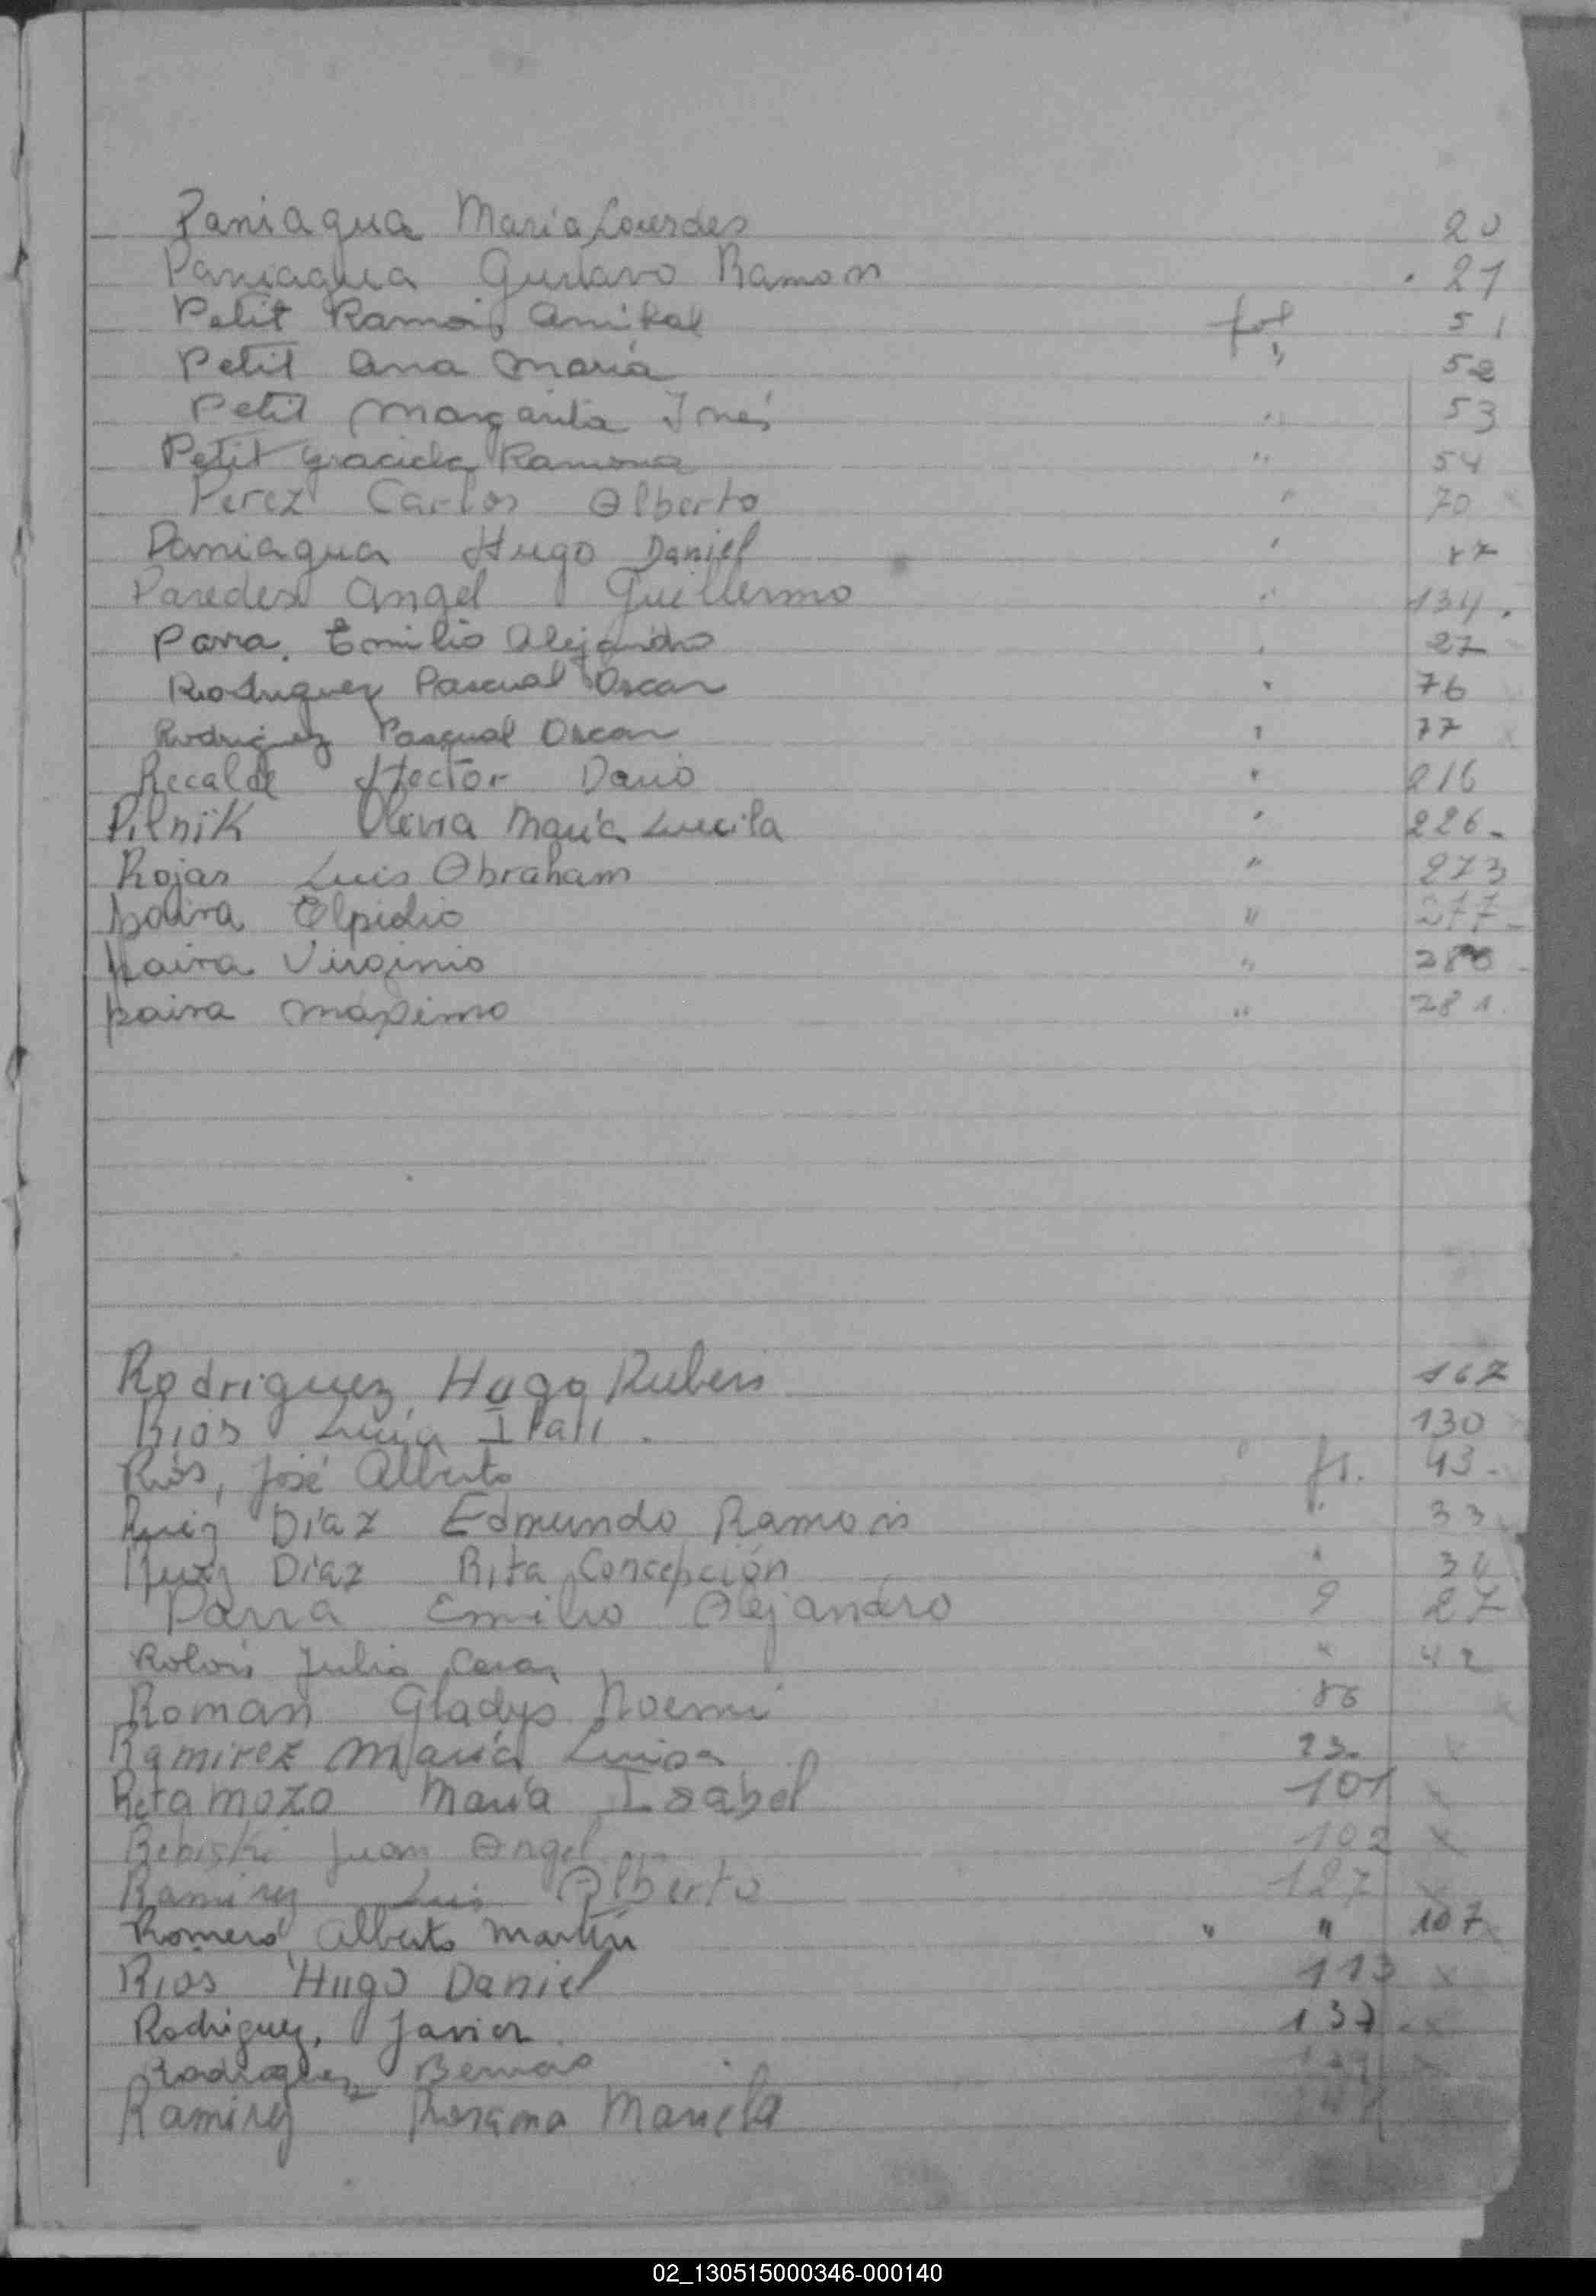 Paniagua Maria Lourdes 20
Paniagua Gustavo Ramon 21
Petit Ramon Anibal fol 51
Petit Ana Maria " 52
Petit Margarita Inés " 53
Petit Graciela Ramona " 54
Perez Carlos Alberto " 70
Paniagua Hugo Daniel "
Paredes Angel Guillermo " 134.
Parra. Emilio Alejandro " 27
Rodriguez Pascual Oscar " 76
Rodriguez Pascual Oscar " 77
Recalde Hector Dario " 216
Pilnik Olivia María Lucila " 226.
Rojas Luis Abraham " 273
paiva Elpidio " 277
paiva Virginio " 280
paiva Máximo " 281.
Rodriguez Hugo Ruben 167
Rios Lucía Itatí. 130
Ríos, José Alberto fs. 43.
Ruiz Díaz Edmundo Ramon " 33
Ruiz Díaz Rita Concepción " 34
Parra Emilio Alejandro 27
Rolón Julio Cesar " 42
Roman Gladys Noemi 86
Ramirez María Luisa 23.
Retamozo María Isabel 101
Juan Angel 102 x
Ramirez Luis Alberto 127 x
Romero Alberto Martín " " 107 x
Rios Hugo Daniel 113 x
Rodriguez, Javier 137 . x
Rodriguez
Ramirez Rosana Mariela
02_130515000346-000140